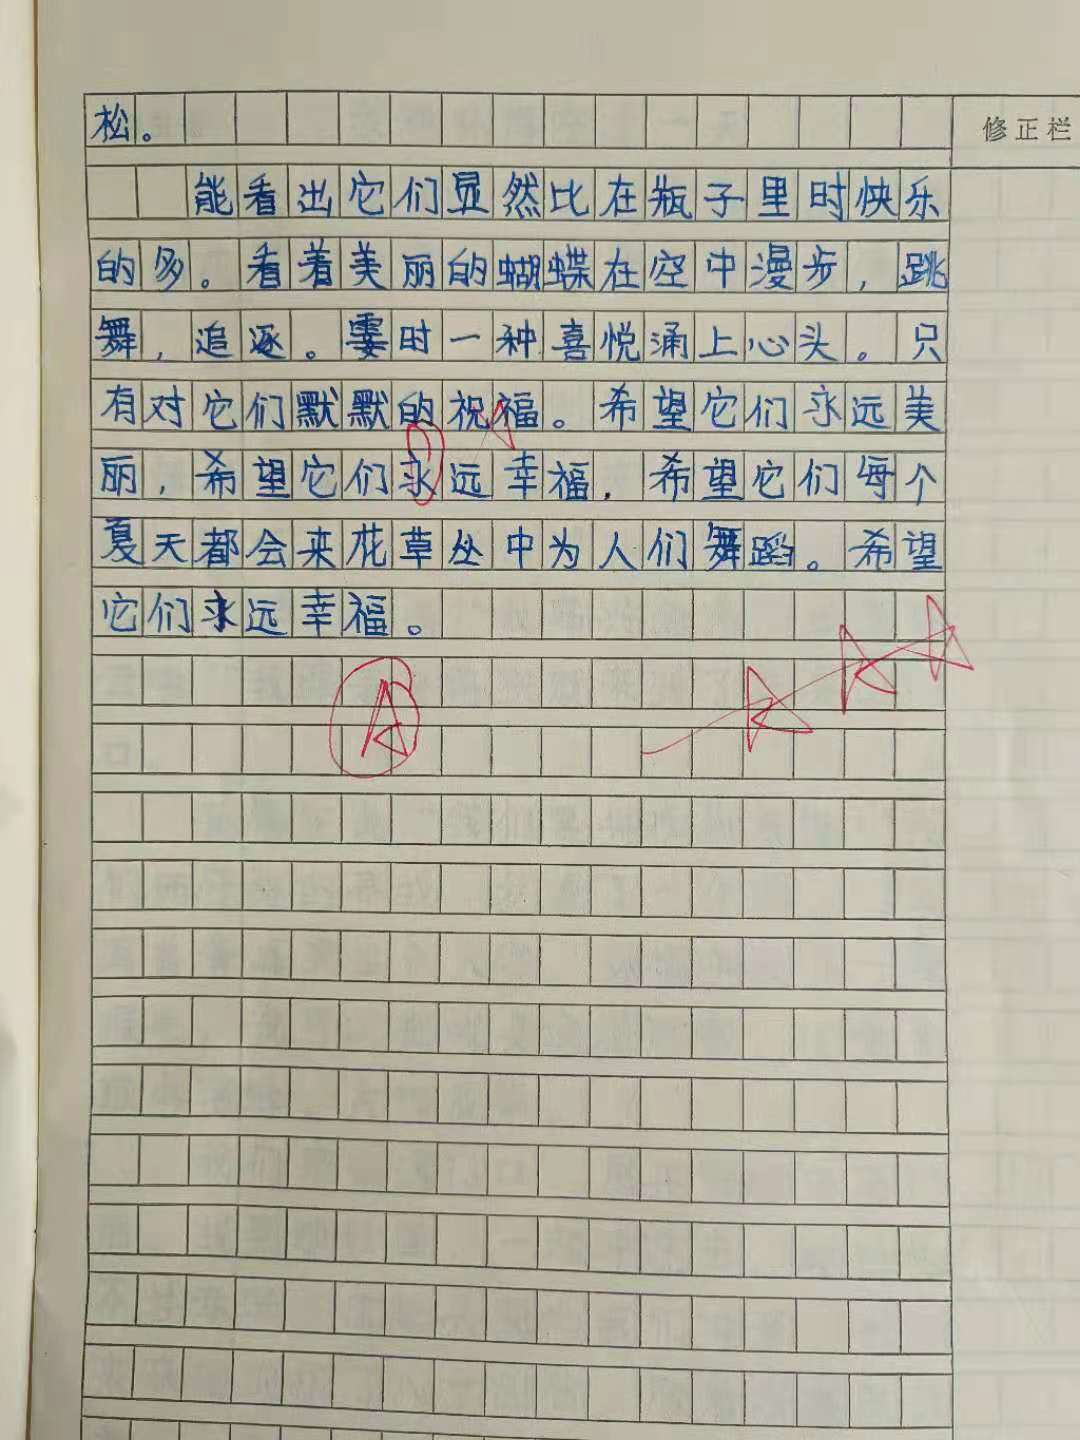 松。
修正栏
能看出它们显然比在瓶子里时快乐
的多。看着美丽的蝴蝶在空中漫步，跳
舞，追逐。霎时一种喜悦涌上心头。只
有对它们默默的祝福。希望它们永远美
丽，希望它们永远幸福，希望它们每个
夏天都会来花草丛中为人们舞蹈。希望
它们永远幸福。
A